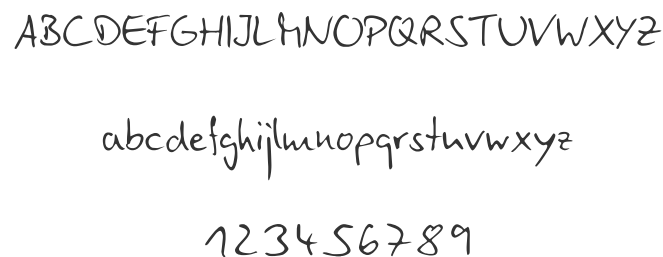 ABCDEFGHIJLMNOPQRSTUVWXYZ
abcdefghijlmnopqrstuvwxyz
123456789